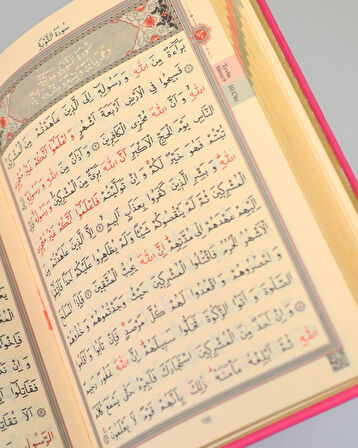 سُورَةُ التَّوْبَةِ
بَرَٓاءَةٌ مِنَ اللّٰهِ وَرَسُولِه۪ٓ اِلَى الَّذ۪ينَ عَاهَدْتُمْ مِنَ الْمُشْرِك۪ينَ
فَس۪يحُوا فِي الْاَرْضِ اَرْبَعَةَ اَشْهُرٍ وَاعْلَمُٓوا اَنَّكُمْ غَيْرُ مُعْجِزِي
اللّٰهِۙ وَاَنَّ اللّٰهَ مُخْزِي الْكَافِر۪ينَ ﴿٢﴾ وَاَذَانٌ مِنَ اللّٰهِ وَرَسُولِه۪ٓ اِلَى
النَّاسِ يَوْمَ الْحَجِّ الْاَكْبَرِ اَنَّ اللّٰهَ بَر۪ٓيءٌ مِنَ الْمُشْرِك۪ينَ وَرَسُولُهُۜ فَاِنْ
تُبْتُمْ فَهُوَ خَيْرٌ لَكُمْۚ وَاِنْ تَوَلَّيْتُمْ فَاعْلَمُٓوا اَنَّكُمْ غَيْرُ مُعْجِزِي
اللّٰهِۜ وَبَشِّرِ الَّذ۪ينَ كَفَرُوا بِعَذَابٍ اَل۪يمٍۙ ﴿٣﴾ اِلَّا الَّذ۪ينَ عَاهَدْتُمْ مِنَ
الْمُشْرِك۪ينَ ثُمَّ لَمْ يَنْقُصُوكُمْ شَيْـًٔا وَلَمْ يُظَاهِرُوا عَلَيْكُمْ اَحَدًا فَاَتِمُّٓوا
اِلَيْهِمْ عَهْدَهُمْ اِلٰى مُدَّتِهِمْۜ اِنَّ اللّٰهَ يُحِبُّ الْمُتَّق۪ينَ ﴿٤﴾ فَاِذَا انْسَلَخَ
الْاَشْهُرُ الْحُرُمُ فَاقْتُلُوا الْمُشْرِك۪ينَ حَيْثُ وَجَدْتُمُوهُمْ وَخُذُوهُمْ
وَاحْصُرُوهُمْ وَاقْعُدُوا لَهُمْ كُلَّ مَرْصَدٍۚ فَاِنْ تَابُوا وَاَقَامُوا
الصَّلٰوةَ وَاٰتَوُا الزَّكٰوةَ فَخَلُّوا سَب۪يلَهُمْۜ اِنَّ اللّٰهَ غَفُورٌ رَح۪يمٌ
﴿٥﴾ وَاِنْ اَحَدٌ مِنَ الْمُشْرِك۪ينَ اسْتَجَارَكَ فَاَجِرْهُ حَتّٰى يَسْمَعَ كَلَامَ
اللّٰهِ ثُمَّ اَبْلِغْهُ مَأْمَنَهُۜ ذٰلِكَ بِاَنَّهُمْ قَوْمٌ لَا يَعْلَمُونَ ﴿٦﴾
Tevbe
Sûresi
10.Cüz